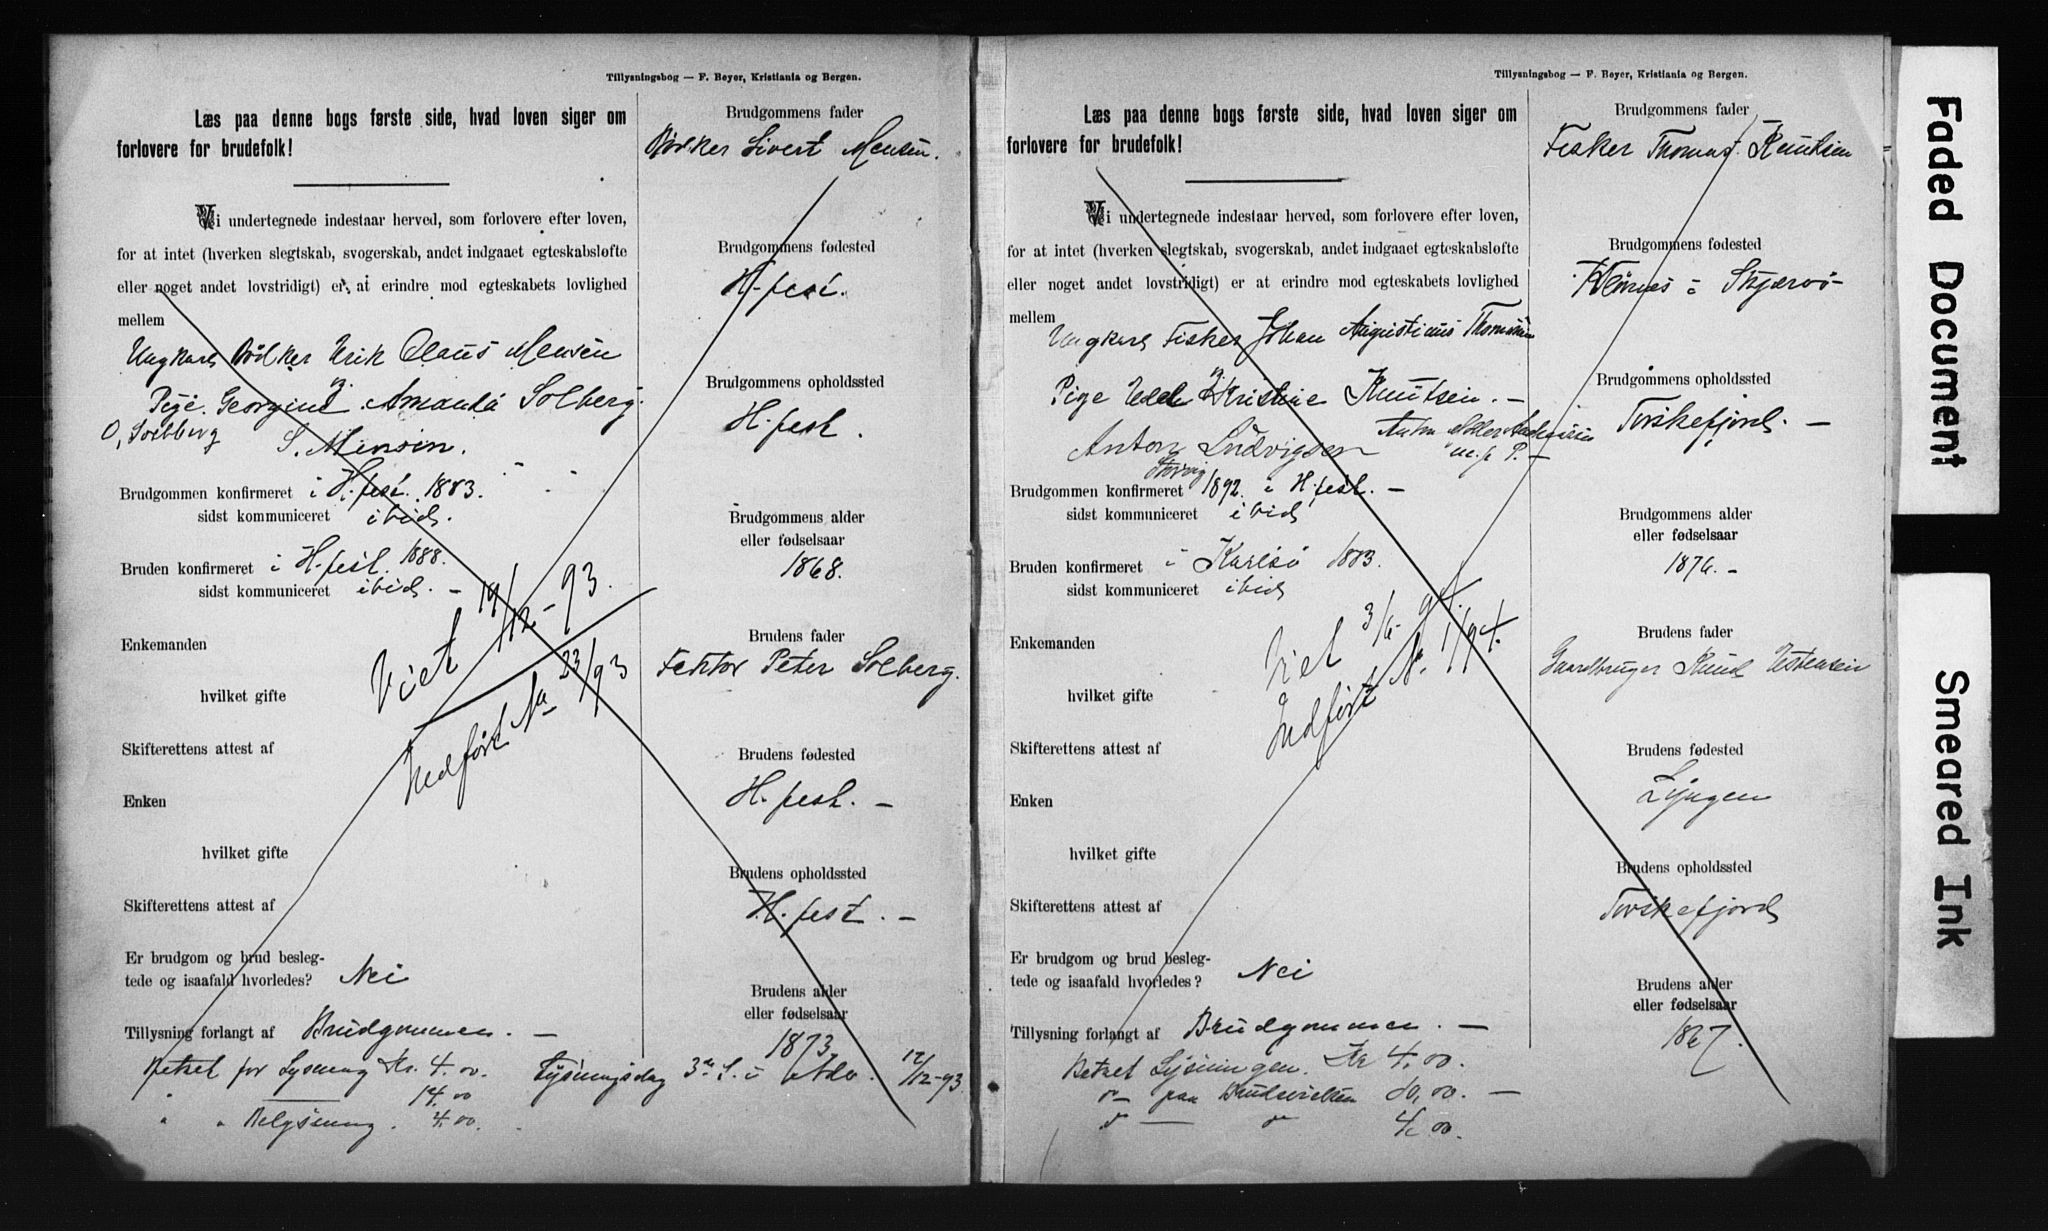 Tillysningsbog — F. Beyer, Kristiania og Bergen.
Læs paa denne bogs første side, hvad loven siger om
forlovere for brudefolk!
Vi undertegnede indestaar herved, som forlovere efter loven,
for at intet (hverken slegtskab, svogerskab, andet indgaaet egteskabsløfte
eller noget andet lovstridigt) er at erindre mod egteskabets lovlighed
mellem
Ungkarl Bødker Erik Olaus Mensen
og
Pige Georgine Amanda Solberg.
O, Soelberg
S. Mensen.
Brudgommen konfirmeret i H.fest. 1883.
sidst kommuniceret ibid.
Bruden konfirmeret i H.fest. 1888.
sidst kommuniceret ibid. —
Enkemanden
Viet 19/12-93.
hvilket gifte
Indført No 23/93
Skifterettens attest af
Enken
hvilket gifte
Skifterettens attest af
Er brudgom og brud besleg-
tede og isaafald hvorledes? Nei
Tillysning forlangt af Brudgommen. —
Betalt for Lysning Kr. 4.00.
14.00
" " Belysning. 4.00.
Brudgommens fader
Bødker Sivert Mensen.
Brudgommens fødested
H.fest.
Brudgommens opholdssted
H.fest.
Brudgommens alder
eller fødselsaar
1868.
Brudens fader
Peter Solberg.
Brudens fødested
H.fest. —
Brudens opholdssted
H.fest. —
Brudens alder
eller fødselsaar
1873
Lysningsdag 3die S. i Adv. 17/12-93
Tillysningsbog — F. Beyer, Kristiania og Bergen.
Læs paa denne bogs første side, hvad loven siger om
forlovere for brudefolk!
Vi undertegnede indestaar herved, som forlovere efter loven,
for at intet (hverken slegtskab, svogerskab, andet indgaaet egteskabsløfte
eller noget andet lovstridigt) er at erindre mod egteskabets lovlighed
mellem
Ungkarl Fisker Johan Augustinus Thomassen
og
Pige Kristine Knutsen. —
Anton Ludvigsen
m. p. P. —
Brudgommen konfirmeret 1892. i H.fest. —
sidst kommuniceret ibid
Bruden konfirmeret i Karlsø 1883.
sidst kommuniceret ibid
Enkemanden
Viet 3/6-94.
hvilket gifte
Indført No. 1/94.
Skifterettens attest af
Enken
hvilket gifte
Skifterettens attest af
Er brudgom og brud besleg-
tede og isaafald hvorledes? Nei
Tillysning forlangt af Brudgommen. —
Betalt Lysningen. Kr 4.00.
paa Brudevielsen —
4.00.
Brudgommens fader
Fisker Thomas Knutsen
Brudgommens fødested
i Skjærvø
Brudgommens opholdssted
Torskefjord. —
Brudgommens alder
eller fødselsaar
1876. —
Brudens fader
Gaardbruger Knud Estensen
Brudens fødested
Lyngen
Brudens opholdssted
Torskefjord
Brudens alder
eller fødselsaar
1867.
Faded Document
Smeared Ink